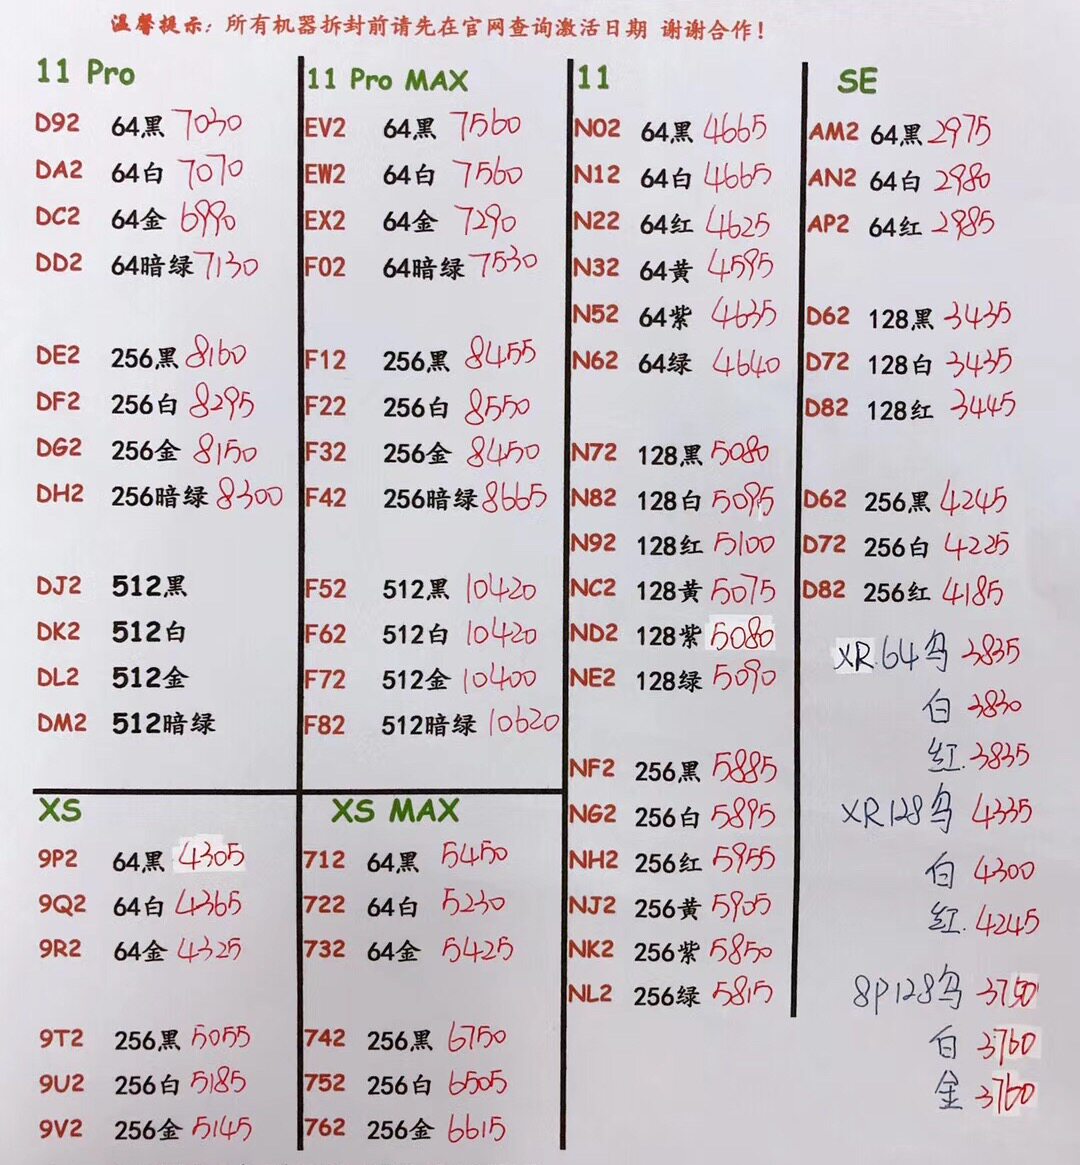 温馨提示：所有机器拆封前请先在官网查询激活日期 谢谢合作！
11 Pro
D92 64黑 7030
DA2 64白 7070
DC2 64金 6990
DD2 64暗绿 7130
DE2 256黑 8160
DF2 256白 8295
DG2 256金 8150
DH2 256暗绿 8300
DJ2 512黑
DK2 512白
DL2 512金
DM2 512暗绿
11 Pro MAX
EV2 64黑 7560
EW2 64白 7560
EX2 64金 7290
F02 64暗绿 7530
F12 256黑 8455
F22 256白 8550
F32 256金 8450
F42 256暗绿 8665
F52 512黑 10420
F62 512白 10420
F72 512金 10400
F82 512暗绿 10620
11
N02 64黑 4665
N12 64白 4665
N22 64红 4625
N32 64黄 4595
N52 64紫 4635
N62 64绿 4640
N72 128黑 5080
N82 128白 5095
N92 128红 5100
NC2 128黄 5075
ND2 128紫 5080
NE2 128绿 5090
NF2 256黑 5885
NG2 256白 5895
NH2 256红 5955
NJ2 256黄 5905
NK2 256紫 5850
NL2 256绿 5815
SE
AM2 64黑 2975
AN2 64白 2980
AP2 64红 2985
D62 128黑 3435
D72 128白 3435
D82 128红 3445
D62 256黑 4245
D72 256白 4225
D82 256红 4185
XR.64乌 3835
白 3830
红. 3835
XR128乌 4335
白 4300
红. 4245
8P128乌 3750
白 3760
金 3760
XS
9P2 64黑 4305
9Q2 64白 4365
9R2 64金 4325
9T2 256黑 5055
9U2 256白 5185
9V2 256金 5145
XS MAX
712 64黑 5450
722 64白 5230
732 64金 5425
742 256黑 6750
752 256白 6505
762 256金 6615